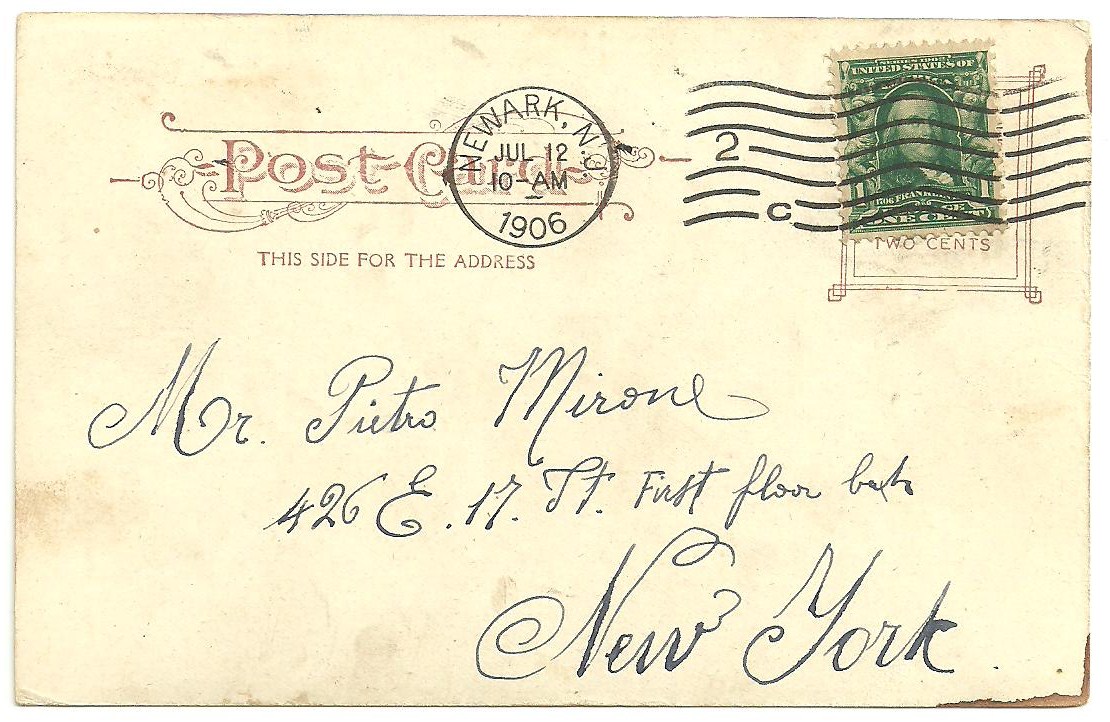 Post Card
THIS SIDE FOR THE ADDRESS
NEWARK, N.J.
JUL 12
10-AM
1906
2
C
SERIES 1902
UNITED STATES OF
AMERICA
1706 FRANKLIN
1 1
ONE CENT
TWO CENTS
Mr. Pietro Mirone
426 E. 17. St. First floor
New York